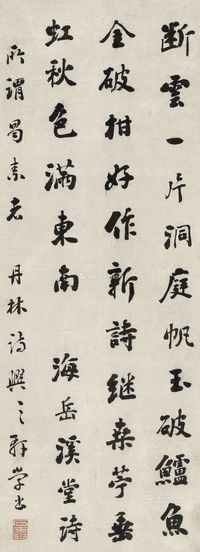 斷雲一片洞庭帆玉破鱸魚
金破柑好作新詩繼桑苧垂
虹秋色滿東南 海岳溪堂詩
所謂蜀素者 丹林詩興之 學書